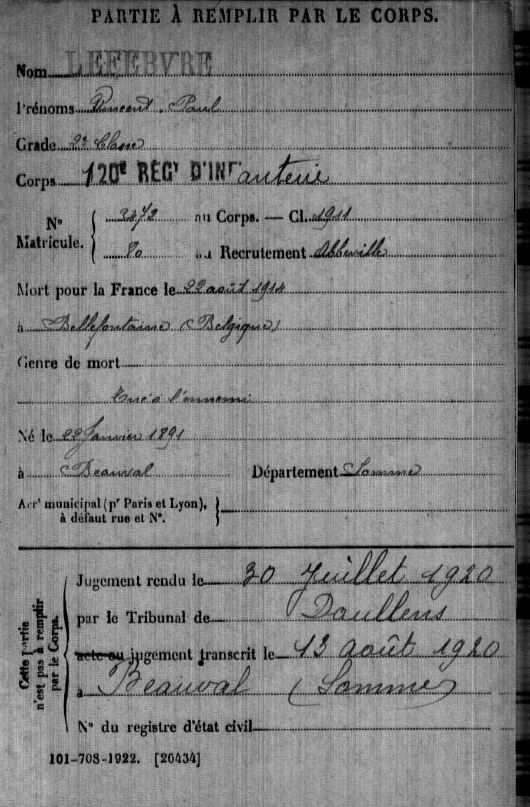 PARTIE À REMPLIR PAR LE CORPS.
Nom LEFEBVRE
Prénoms Vincent Paul
Grade 2e Classe
Corps 120e RÉGt D'INFanterie
No Matricule. { 3472 au Corps. — Cl. 1911
80 au Recrutement Abbeville
Mort pour la France le 22 août 1914
à Bellefontaine (Belgique)
Genre de mort
Tué à l'ennemi
Né le 22 Janvier 1891
à Beauval Département Somme
Arrt municipal (pr Paris et Lyon), }
à défaut rue et No.
Cette partie
n'est pas à remplir
par le Corps.
Jugement rendu le 30 Juillet 1920
par le Tribunal de Doullens
acte ou jugement transcrit le 13 août 1920
à Beauval (Somme)
No du registre d'état civil
101-708-1922. [26434]